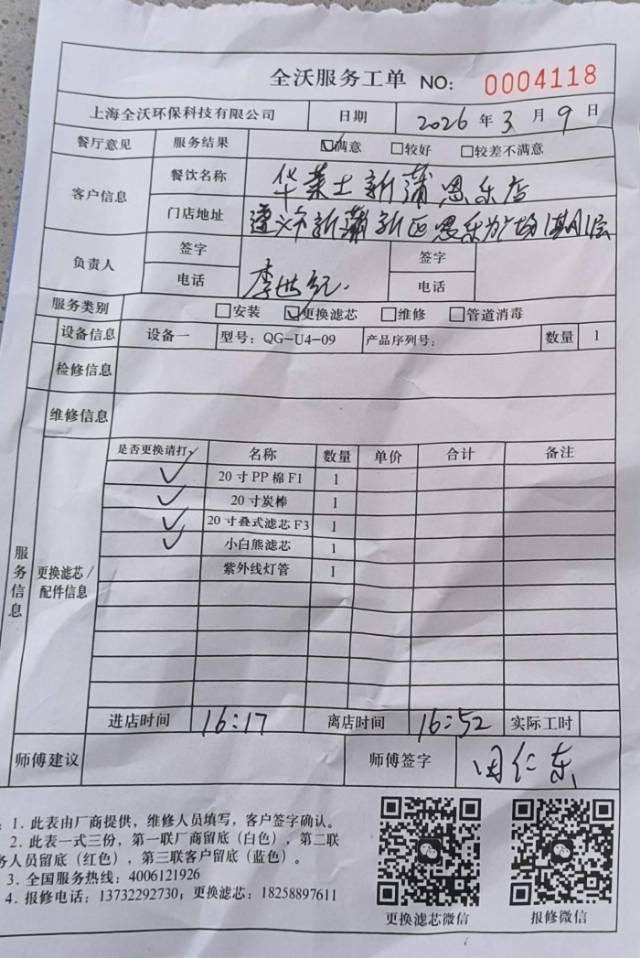 全沃服务工单 NO: 0004118
上海全沃环保科技有限公司 日期 2026年3月9日
餐厅意见 服务结果 ☑满意 □较好 □较差不满意
客户信息 餐饮名称 华莱士新蒲恩乐店
门店地址 遵义市新蒲新区恩乐广场1期1层
负责人 签字 李世纪 签字
电话 电话
服务类别 □安装 ☑更换滤芯 □维修 □管道消毒
设备信息 设备一 型号: QG-U4-09 产品序列号: 数量 1
检修信息
维修信息
服务信息
更换滤芯/配件信息
是否更换请打√ 名称 数量 单价 合计 备注
✓ 20寸PP棉F1 1
✓ 20寸炭棒 1
✓ 20寸叠式滤芯F3 1
✓ 小白熊滤芯 1
紫外线灯管 1
进店时间 16:17 离店时间 16:52 实际工时
师傅建议 师傅签字 田仁东
: 1. 此表由厂商提供，维修人员填写，客户签字确认。
2. 此表一式三份，第一联厂商留底（白色），第二联
务人员留底（红色），第三联客户留底（蓝色）。
3. 全国服务热线: 4006121926
4. 报修电话: 13732292730; 更换滤芯: 18258897611
更换滤芯微信 报修微信